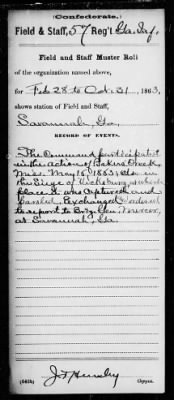 Confederate.
Field & Staff, 57 Reg't Ga. Inf.
Field and Staff Muster Roll
of the organization named above,
for Feb 28 to Oct. 31, 1863,
shows station of Field and Staff,
Savannah, Ga.
RECORD OF EVENTS.
The Command participated
in the action of Bakers Creek,
Miss. May 16, 1863; also in
the Siege of Vicksburg, at which
place it was captured and
paroled. Exchanged & ordered
to report to Brig. Gen. Mercer,
at Savannah, Ga.
(645b)
Copyist.